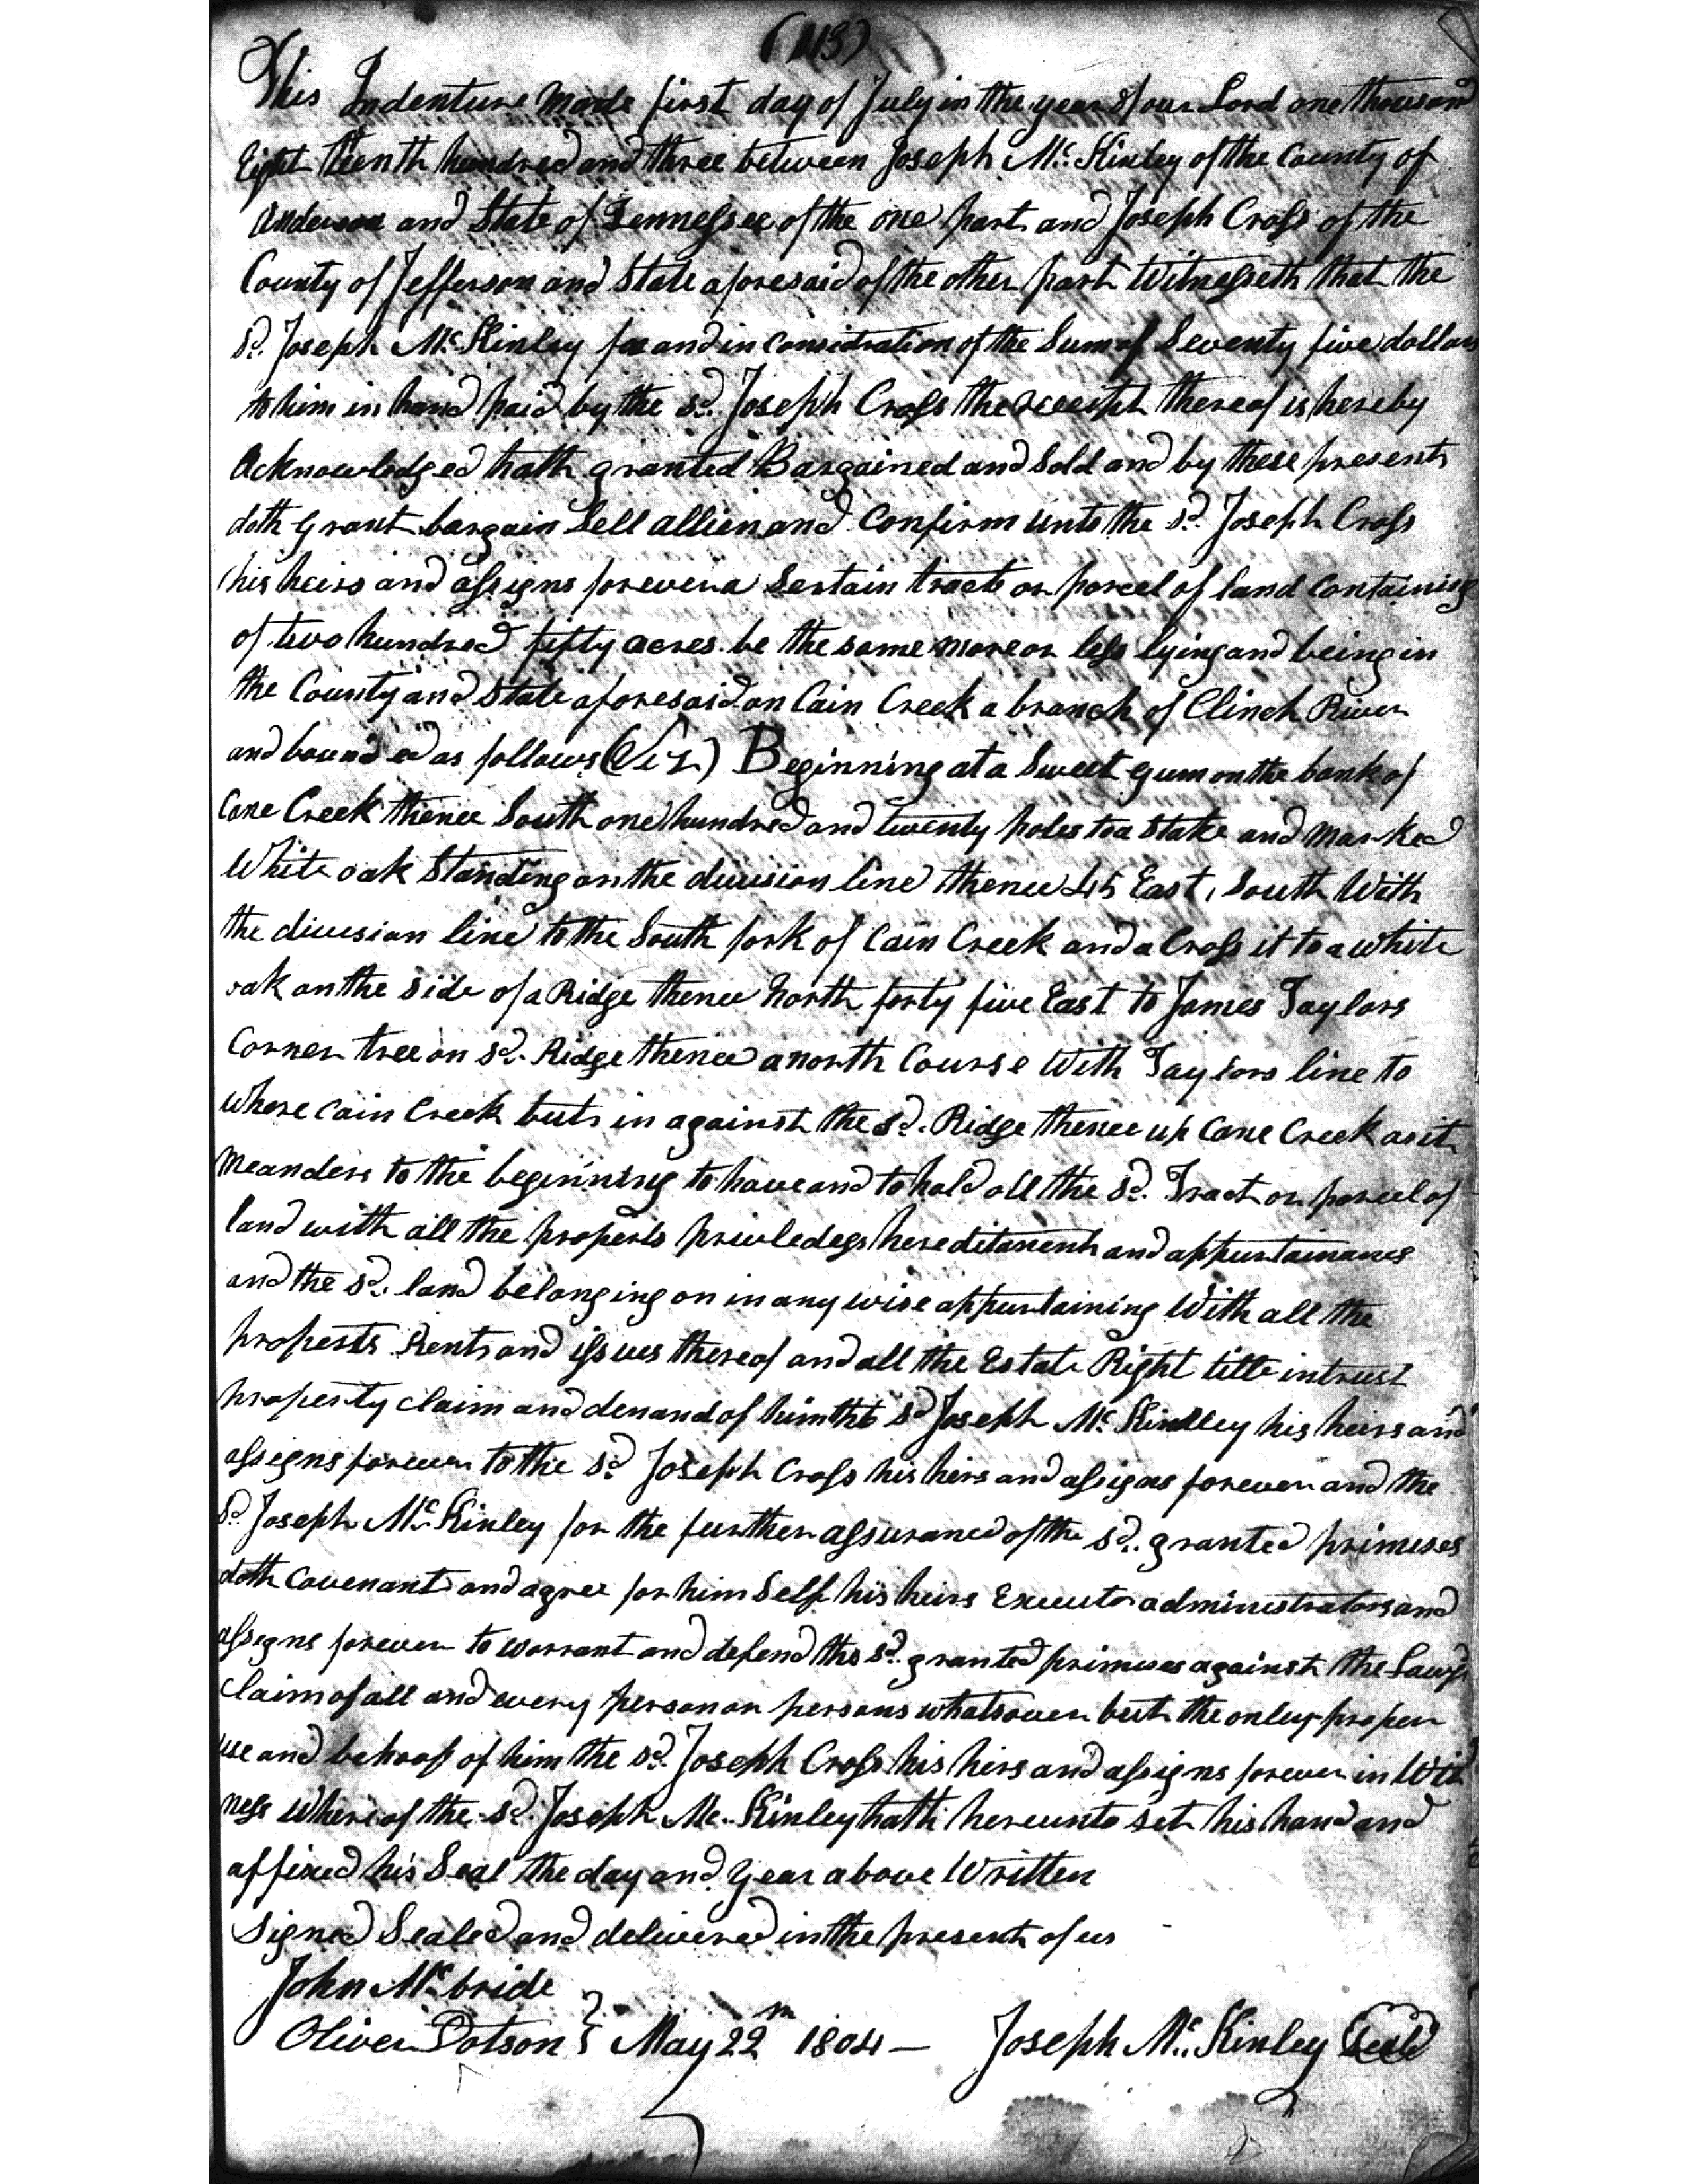 (113)
This Indenture made first day of July in the year of our Lord one thousand
Eight teenth hundred and three between Joseph Mc. Kinley of the County of
Anderson and State of Tennessee of the one part and Joseph Cross of the
County of Jefferson and State aforesaid of the other part Witnesseth that the
sd. Joseph Mc. Kinley for and in considration of the Sum of Seventy five dollars
to him in hand paid by the sd. Joseph Cross the receipt thereof is hereby
Acknowledged hath granted Bargained and Sold and by these presents
doth Grant bargain Sell allien and Confirm unto the sd. Joseph Cross
his heirs and assigns forever a Sertain tracts or parcel of land Containing
of two hundred fifty acres be the same more or less lying and being in
the County and State aforesaid on Cain Creek a branch of Clinch River
and bounded as follows (Viz) Beginning at a Sweet gum on the bank of
Cane Creek thence South one hundred and twenty poles to a Stake and marked
White oak Standing on the division line thence 45 East, South With
the division line to the South fork of Cain Creek and a Cross it to a white
oak on the side of a Ridge thence North forty five East to James Taylors
Corner tree on sd. Ridge thence a north Course With Taylors line to
where Cain Creek buts in against the sd. Ridge thence up Cane Creek as it
Meanders to the beginning to have and to hold all the sd. Tract or parcel of
land with all the properts priviledegs hereditaments and appurtainances
and the sd. land belonging on in any wise appurtaining With all the
properts Rents and issues thereof and all the Estate Right title intrust
property claim and demand of him the sd Joseph Mc. Kindley his heirs and
assigns forever to the sd Joseph Cross his heirs and assigns forever and the
sd. Joseph Mc. Kinley for the further assuraned of the sd. granted primeses
doth Covenant and agree for him Self his heirs Executor administrators and
assigns forever to warrant and defend the sd. granted primeses against the Lawf
Claim of all and every person or persons whatsover but the onley proper
use and behoof of him the sd. Joseph Cross his hirs and assigns forever in Wit
ness Whereof the sd. Joseph Mc. Kinley hath hereunto set his hand and
affixed his Seal the day and year above Written
Signed Sealed and delivered in the present of us
John Mc bride
Oliver Dotson } May 22 m 1804 — Joseph Mc. Kinley Seal